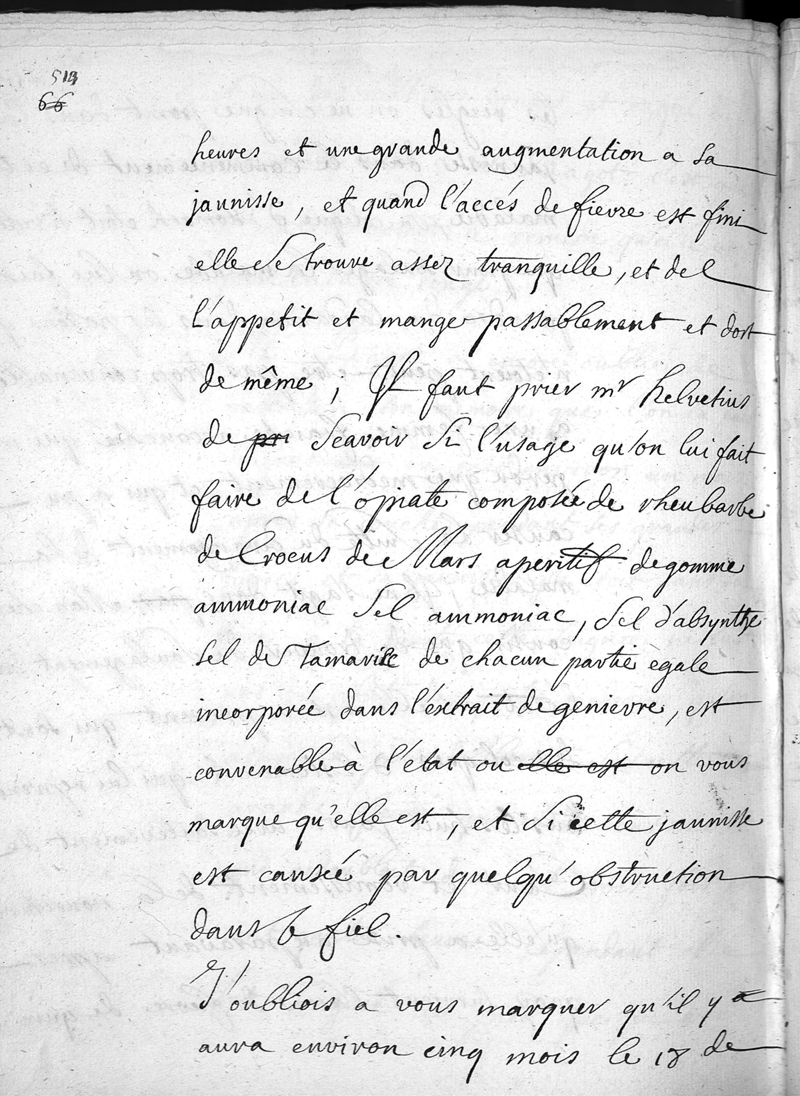 513
66
heures et une grande augmentation a sa
jaunisse, et quand l'accés de fievre est fini
elle se trouve assez tranquille, et de
l'appetit et mange passablement et dort
de même, Il faut prier mr helvetius
de pri scavoir si l'usage qu'on lui fait
faire de l'opiate composée de rheubarbe
de Crocus de Mars aperitif de gomme
ammoniac sel ammoniac, sel d'absynthe
sel de Tamarisc de chacun partie egale
incorporée dans l'extrait de genievre, est
convenable à l'état ou elle est on vous
marque qu'elle est, et si cette jaunisse
est causée par quelqu'obstruction
dans le fiel.
J'oubliois a vous marquer qu'il y a
aura environ cinq mois le 18 de